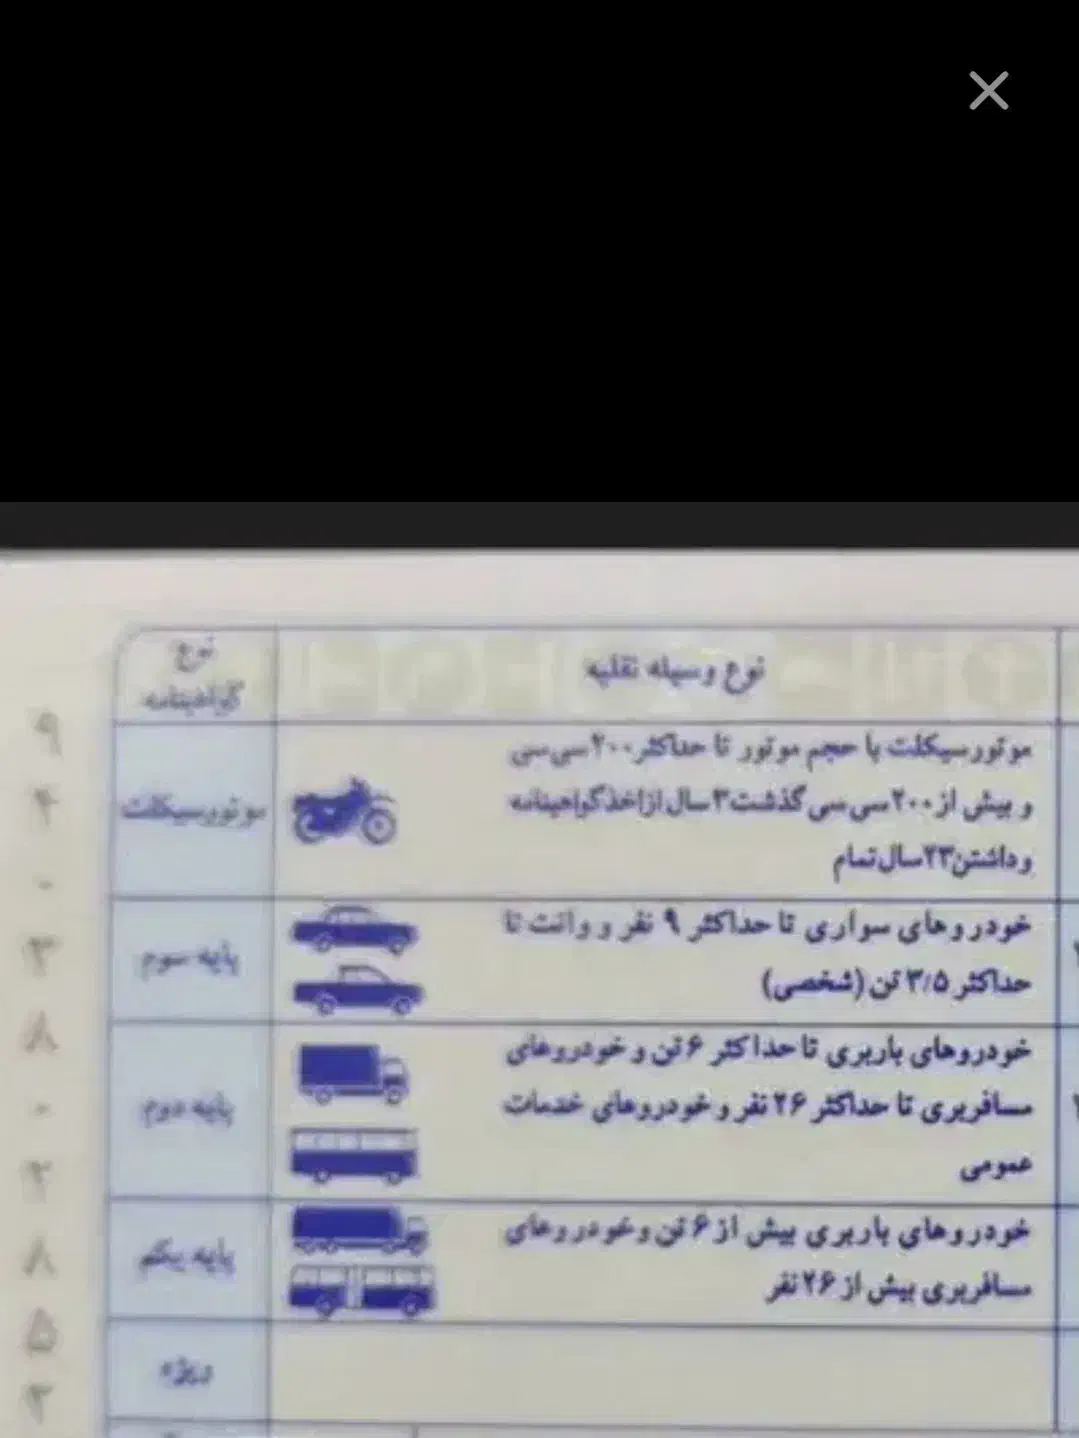 نوع وسیله نقلیه
نوع
گواهینامه
موتورسیکلت با حجم موتور تا حداکثر ۲۰۰ سی سی
و بیش از ۲۰۰ سی سی گذشت ۳ سال از اخذ گواهینامه
و داشتن ۲۳ سال تمام
موتورسیکلت
خودروهای سواری تا حداکثر ۹ نفر و وانت تا
حداکثر ۳/۵ تن (شخصی)
پایه سوم
خودروهای باربری تا حداکثر ۶ تن و خودروهای
مسافربری تا حداکثر ۲۶ نفر و خودروهای خدمات
عمومی
پایه دوم
خودروهای باربری بیش از ۶ تن و خودروهای
مسافربری بیش از ۲۶ نفر
پایه یکم
ویژه
۹
۴
۰
۳
۸
۰
۲
۸
۵
۲